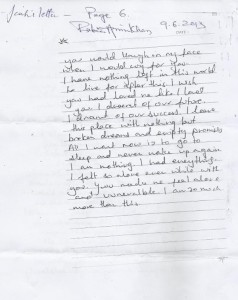 Jiah's letter - Page 6
9.6.2013
*
you would laugh in my face
when I would cry for you.
I have nothing left in this world
to live for after this. I wish
you had loved me like I loved
you. I dreamt of our future.
I dreamt of our success. I leave
this place with nothing but
broken dreams and empty promises
All I want now is to go to
sleep and never wake up again
I am nothing. I had everything.
I felt so alone even while with
you. You made me feel alone
and vulnerable. I am so much
more than this